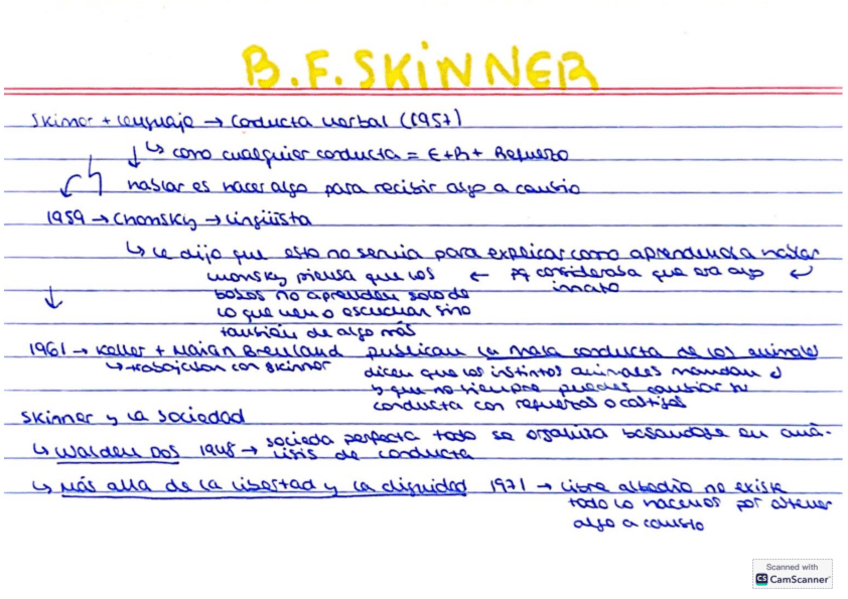 B.F. SKINNER
Skinner + lenguaje → Conducta verbal (1957)
↳ como cualquier conducta = E+R+ Refuerzo
hablar es hacer algo para recibir algo a cambio
1959 → Chomsky → lingüista
↳ le dijo que esto no servia para explicar como aprendemos a hablar
chomsky piensa que los ← pq consideraba que era algo
bebes no aprenden solo de innato
lo que ven o escuchan sino
también de algo más
1961 → Keller + Marian Breuland publican la mala conducta de los animales
↳ trabajaban con skinner dicen que los instintos animales mandan
y que no siempre puedes cambiar tu
conducta con refuerzos o castigos
Skinner y la sociedad
↳ Walden Dos 1948 → socieda perfecta todo se organiza basandose en aná-
lisis de conducta
↳ Más alla de la libertad y la dignidad 1971 → libre albedrio no existe
todo lo hacemos por obtener
algo a cambio
Scanned with
CS CamScanner